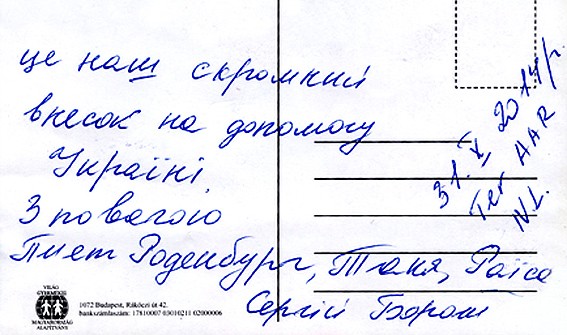 це наш скромний
внесок на допомогу
Україні
З повагою
Пиет Роденбург, Таня, Раїса
Сергій
31. X 2014р
Ter AAR
NL.
VILÁG
GYERMEKEI
MAGYARORSZÁG
ALAPÍTVÁNY
1072 Budapest, Rákóczi út 42.
bankszámlaszám: 17810007 03010211 02000006